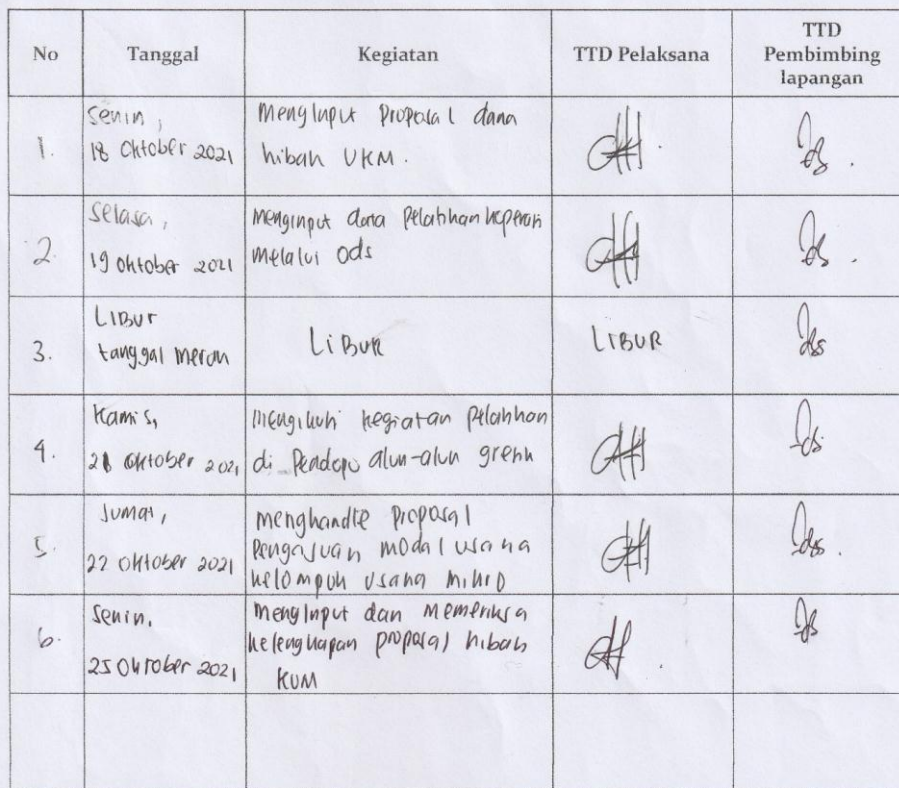 No Tanggal Kegiatan TTD Pelaksana TTD Pembimbing lapangan
1. Senin, 18 Oktober 2021
Menginput Proposal dana
hibah UKM.
2. Selasa, 19 Oktober 2021
Menginput data Pelatihan koperasi
melalui ods
3. LIBUR
tanggal merah
LIBUR LIBUR
4. Kamis, 21 Oktober 2021
mengikuti kegiatan Pelatihan
di Pendopo alun-alun
5. Jumat, 22 Oktober 2021
menghandle Proposal
Pengajuan modal usaha
kelompok usaha mikro
6. Senin, 25 Oktober 2021
Menginput dan Memeriksa
kelengkapan proposal hibah
KUM